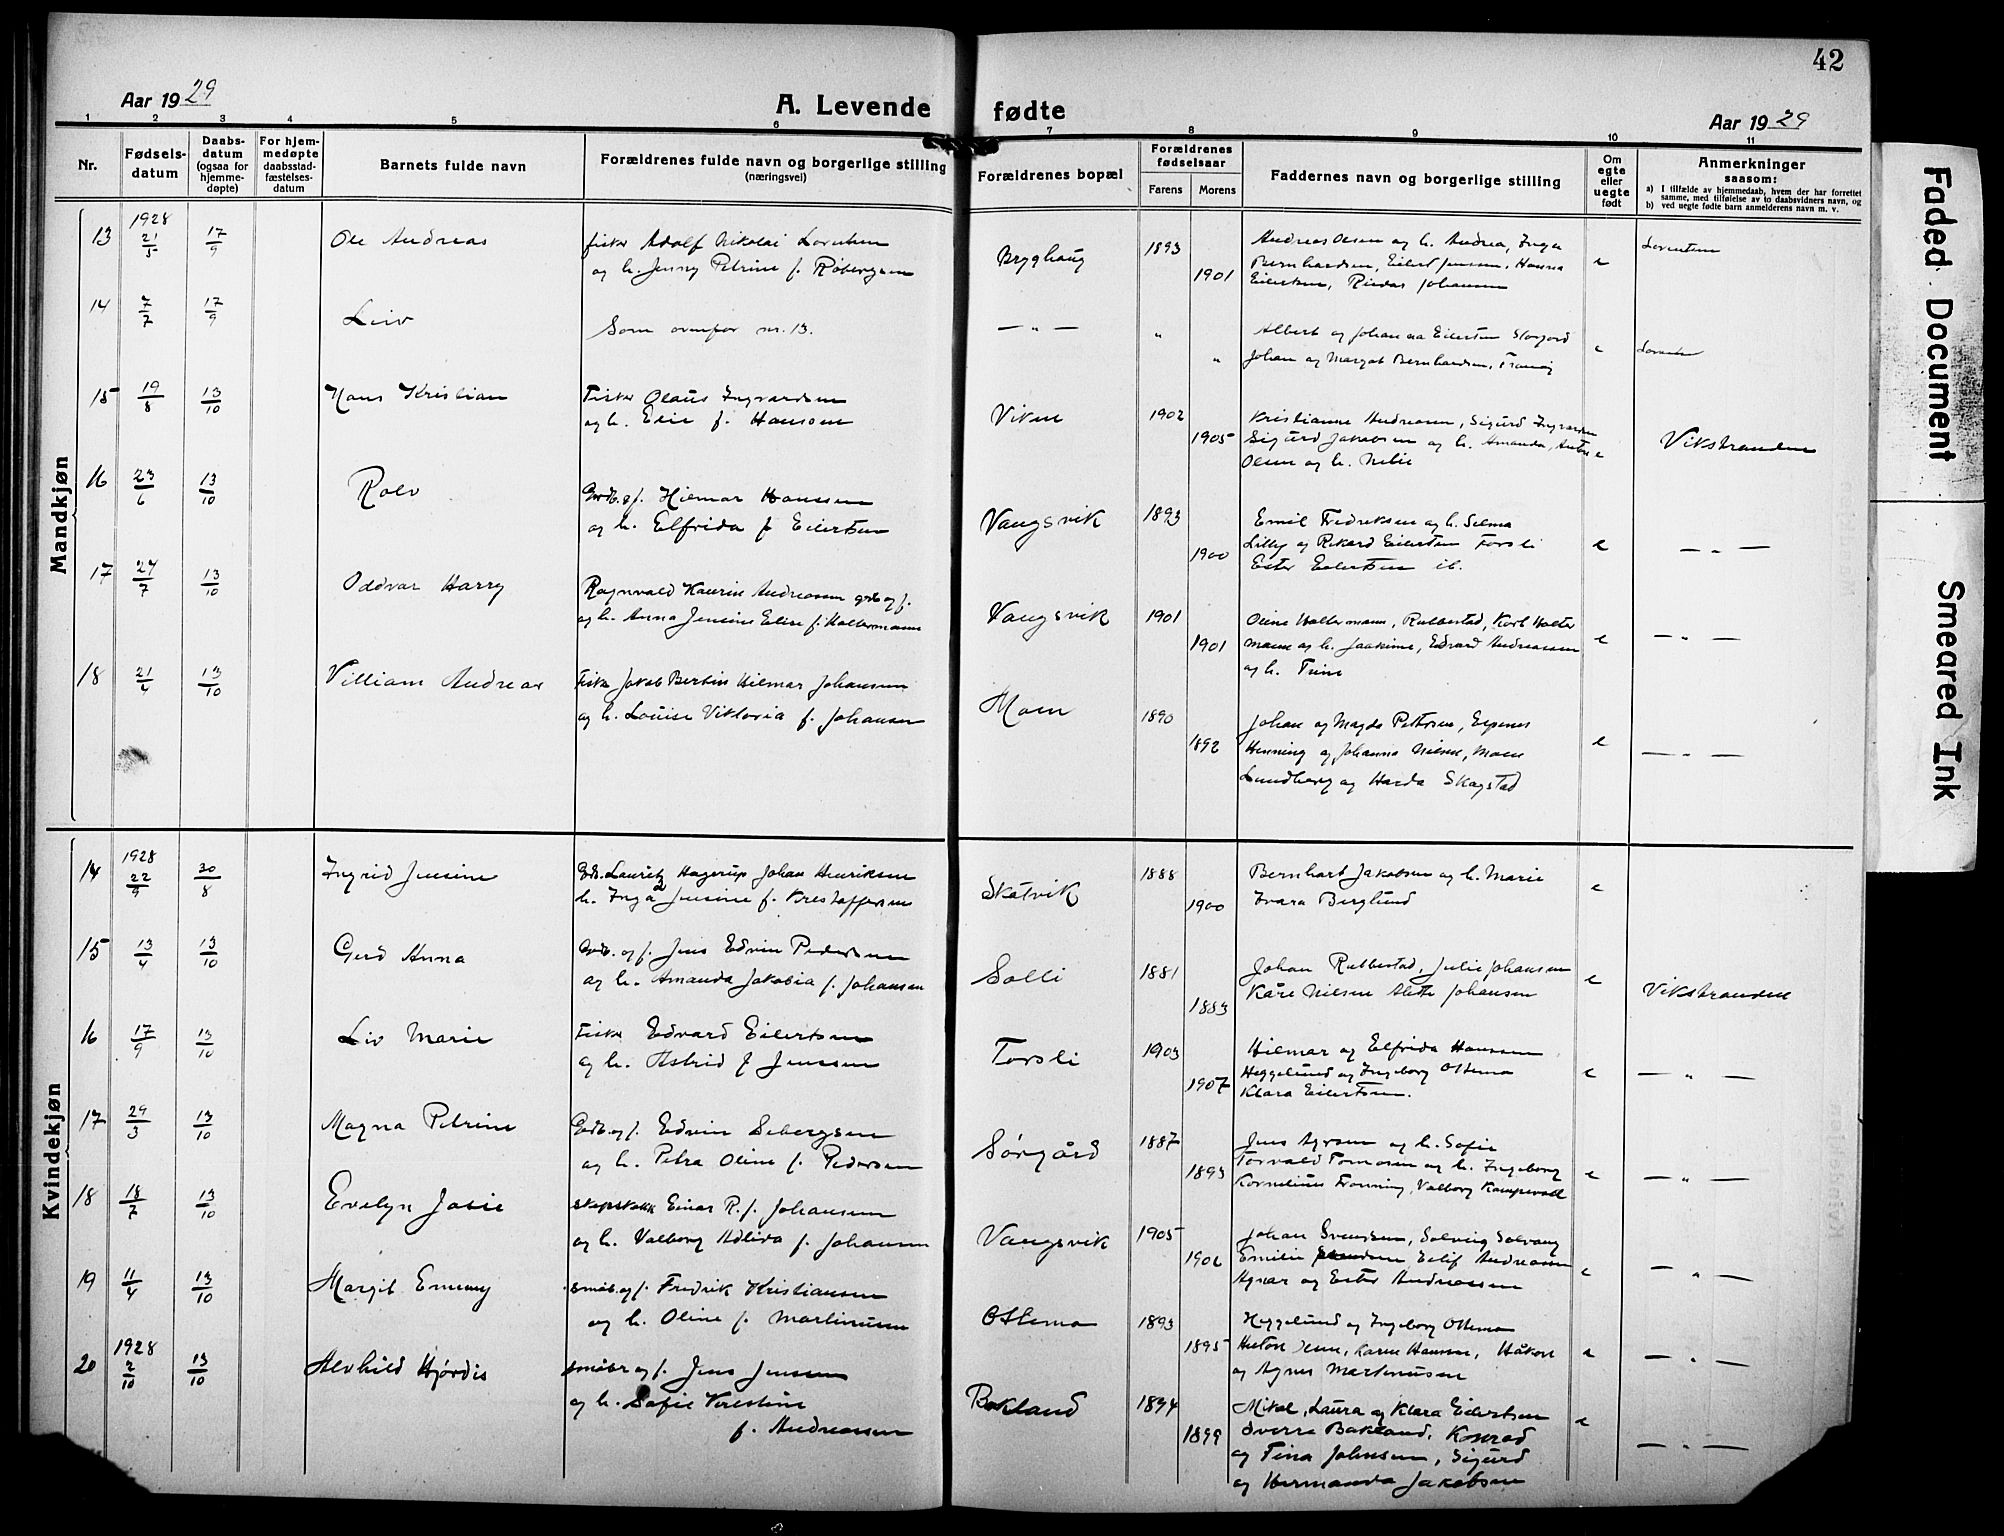 42
Aar 1929
A. Levende fødte
Aar 1929
1 2 3 4 5 6 7 8 9 10 11
Nr.
Fødsels-
datum
Daabs-
datum
(ogsaa for
hjemme-
døpte)
For hjem-
medøpte
daabsstad-
fæstelses-
datum
Barnets fulde navn
Forældrenes fulde navn og borgerlige stilling
(næringsvei)
Forældrenes bopæl
Forældrenes
fødselsaar
Farens Morens
Faddernes navn og borgerlige stilling
Om
egte
eller
uegte
født
Anmerkninger
saasom:
a) I tilfælde av hjemmedaab, hvem der har forrettet
samme, med tilføielse av to daabsvidners navn, og
b) ved uegte fødte barn anmelderens navn m. v.
Mandkjøn
13 1928 21/5 17/9 Ole Andreas fisker Adolf Nikolai Lorentsen Bryghaug 1893 Andreas Olsen og h. Andrea, Inga
og h. Jenny Petrine f. Robergsen 1901 Bernhardsen, Eilert Jensen, Hanna e
Eilertsen, Reidar Johansen
14 7/7 17/9 Leiv Som ovenfor nr. 13. — " — " Albert og Johanna Eilertsen
" Johan og Margot Bernhardsen, Tranøy e
15 19/8 13/10 Hans Kristian Fisker Olaus Ingvardsen Viken 1902 Kristianne Andreasen, Sigurd Ingvardsen
og h. Elie f. Hansen 1905 Sigurd Jakobsen og h. Amanda, e Vikstranden
Olsen og h. Nelie
16 23/6 13/10 Rolv Grdb. og f. Hilmar Hanssen Vangsvik 1893 Emil Fredriksen og h. Selma
og h. Elfrida f. Eilertsen 1900 Lilly og Rikard Eilertsen Forsli e — " —
Ester Eilertsen ib.
17 24/7 13/10 Oddvar Harry Ragnvald Kaurin Andreassen grdb og f. Vangsvik 1901 Oline Haltermann, Rubbestad, Karl Halter
og h. Anna Jensine Elise f. Haltermann 1901 mann og h. Joakime, Edvard Andreassen e — " —
og h. Trine
18 21/4 13/10 Villiam Andreas Fisker Jakob Bertin Hilmar Johansen Moen 1890 Johan og Magda Pettersen, Espenes
og h. Louise Viktoria f. Johansen 1892 Henning og Johanna Nilsen, Moen e — " —
Lundberg og Harda Skogstad
Kvindekjøn
14 1928 22/9 30/8 Ingrid Jensine Grdb. Lauritz Hagerup Johan Henriksen Skatvik 1888 Bernhart Jakobsen og h. Marie
h. Inga Jensine f. Kristoffersen 1900 Ivara Berglund e
15 13/4 13/10 Gerd Anna Grdb. og f. Jens Edvin Pedersen Solli 1881 Johan Rubbestad, Julie Johansen
og h. Amanda Jakobia f. Johansen 1883 Kåre Nilsen Alette Johansen e Vikstranden
16 17/9 13/10 Liv Marie Fisker Edvard Eilertsen Forsli 1903 Hilmar og Elfrida Hanssen
og h. Astrid f. Jenssen 1907 Heggelund og Ingeborg Ottemo e — " —
Klara Eilertsen.
17 29/3 13/10 Magna Petrine Grdb. og f. Edvin Sebergsen Sørgård 1887 Jens Agrsen og h. Sofie
og h. Petra Oline f. Pedersen 1893 Torvald Tomasen og h. Ingeborg e — " —
Kornelius Tronning, Valborg Kampevoll
18 18/7 13/10 Evelyn Josie Einar R. f. Johansen Vangsvik 1905 Johan Svendsen, Solveig Solvang
og h. Valborg f. Johansen Emilie Eilif Andreassen e — " —
Agnar og Ester Andreassen
19 11/4 13/10 Margit Emmy småb. og f. Fredrik Kristiansen Ottemo 1893 Heggelund og Ingeborg Ottemo
og h. Oline f. Martinusen 1895 Anton Karen Hansen, Håkon e — " —
og Agnes Martinusen
20 1928 2/10 13/10 Alvhild Hjørdis småbr og f. Jens Jensen Bakland 1894 Mikal, Laura og Klara Eilertsen e
og h. Sofie Kirestine 1899 Sverre Bakland, Konrad
f. Andreassen og Tina Johnsen, Sigurd — " —
og Hermanda Jakobsen
Faded Document
Smeared Ink